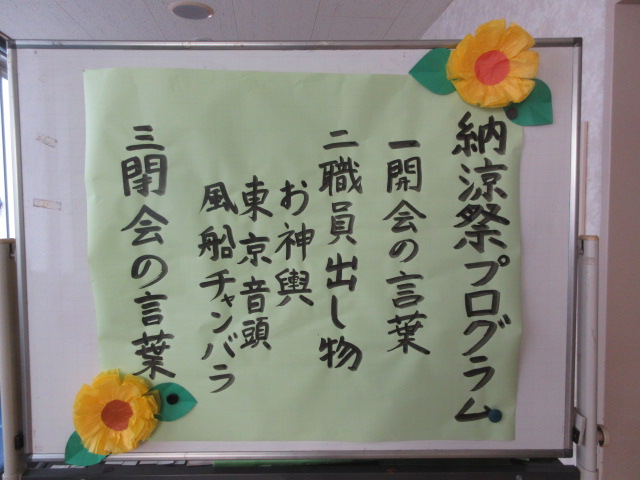 納涼祭プログラム
一開会の言葉
二職員出し物
お神輿
東京音頭
風船チャンバラ
三閉会の言葉